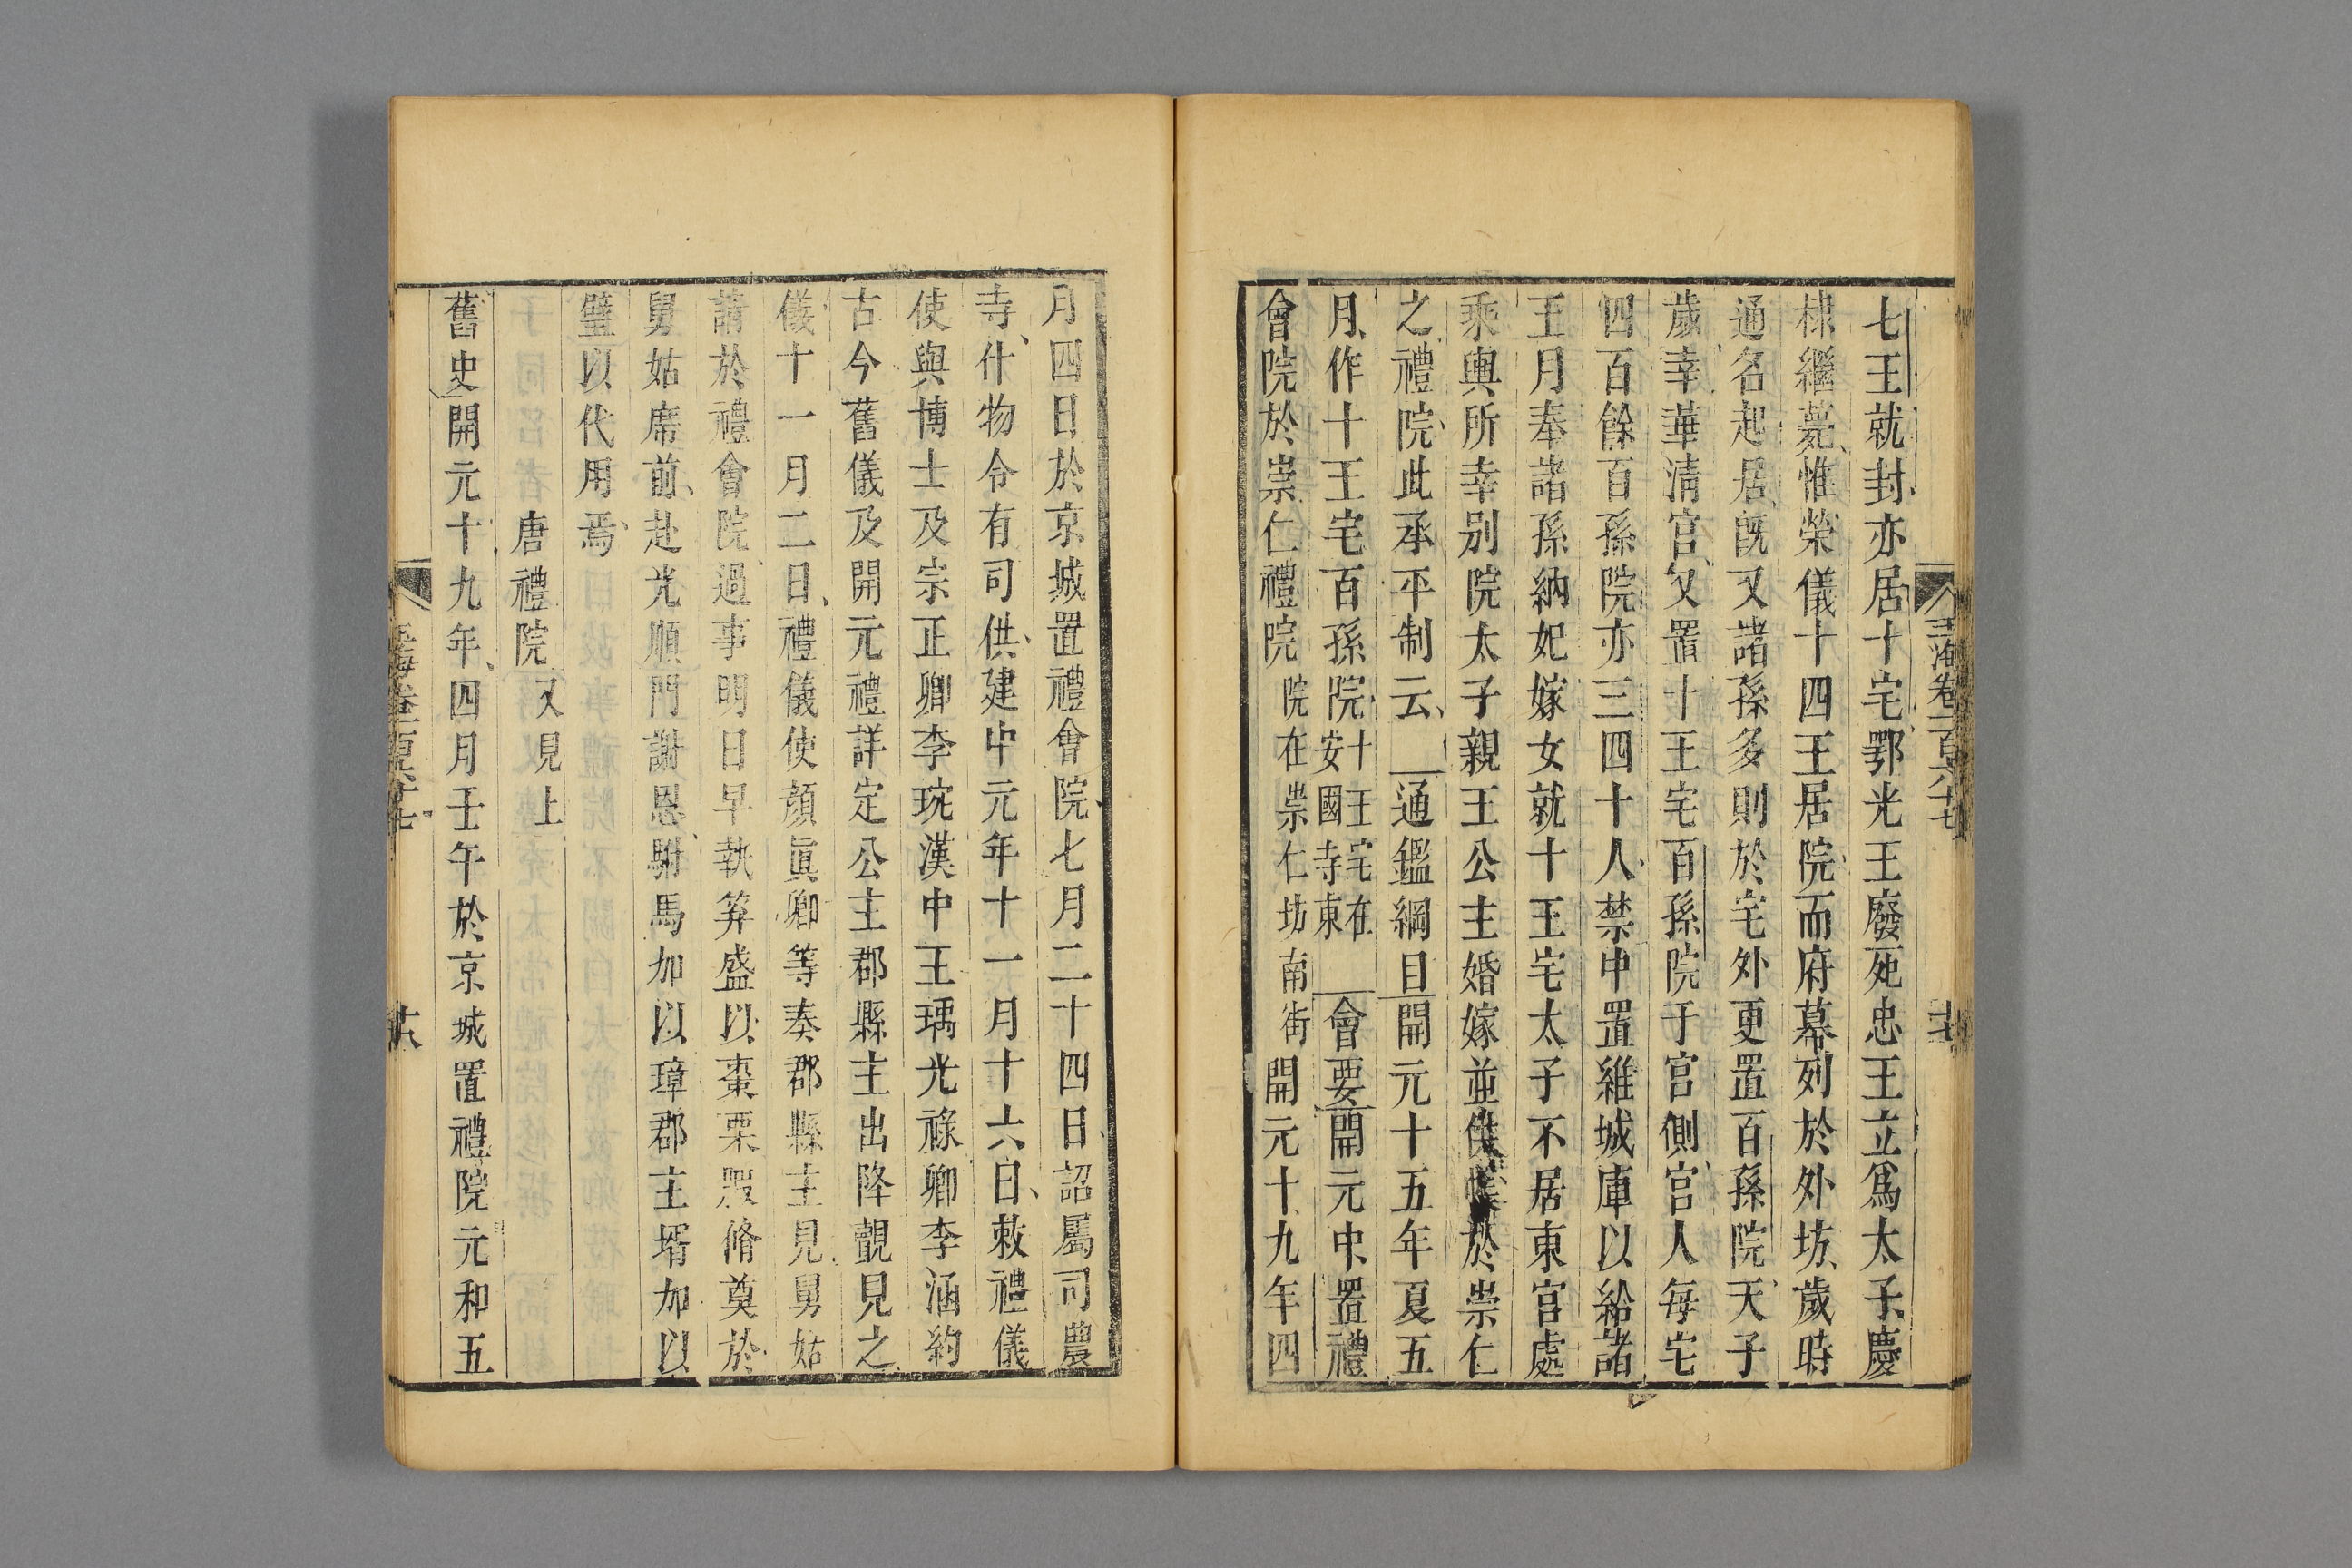 玉海卷一百六十七
十七
七王就封亦居十宅鄂光王廢死忠王立爲太子慶
棣繼薨惟榮儀十四王居院而府幕列於外坊歲時
通名起居旣又諸孫多則於宅外更置百孫院天子
歲幸華淸宮又置十王宅百孫院于宮側宮人每宅
四百餘百孫院亦三四十人禁中置維城庫以給諸
王月奉諸孫納妃嫁女就十王宅太子不居東宮處
乘輿所幸別院太子親王公主婚嫁並供帳於崇仁
之禮院此承平制云 通鑑綱目開元十五年夏五
月作十王宅百孫院十王宅在安國寺東 會要開元中置禮
會院於崇仁禮院院在崇仁坊南街開元十九年四
月四日於京城置禮會院七月二十四日詔屬司農
寺什物令有司供建中元年十一月十六日敕禮儀
使與博士及宗正卿李琬漢中王瑀光祿卿李涵約
古今舊儀及開元禮詳定公主郡縣主出降覿見之
儀十一月二日禮儀使顔眞卿等奏郡縣主見舅姑
請於禮會院過事明日早執笲盛以棗栗腶脩奠於
舅姑席前赴光順門謝恩駙馬加以璋郡主壻加以
璧以代用焉
唐禮院又見上
舊史開元十九年四月壬午於京城置禮院元和五
玉海卷一百六十七
十八